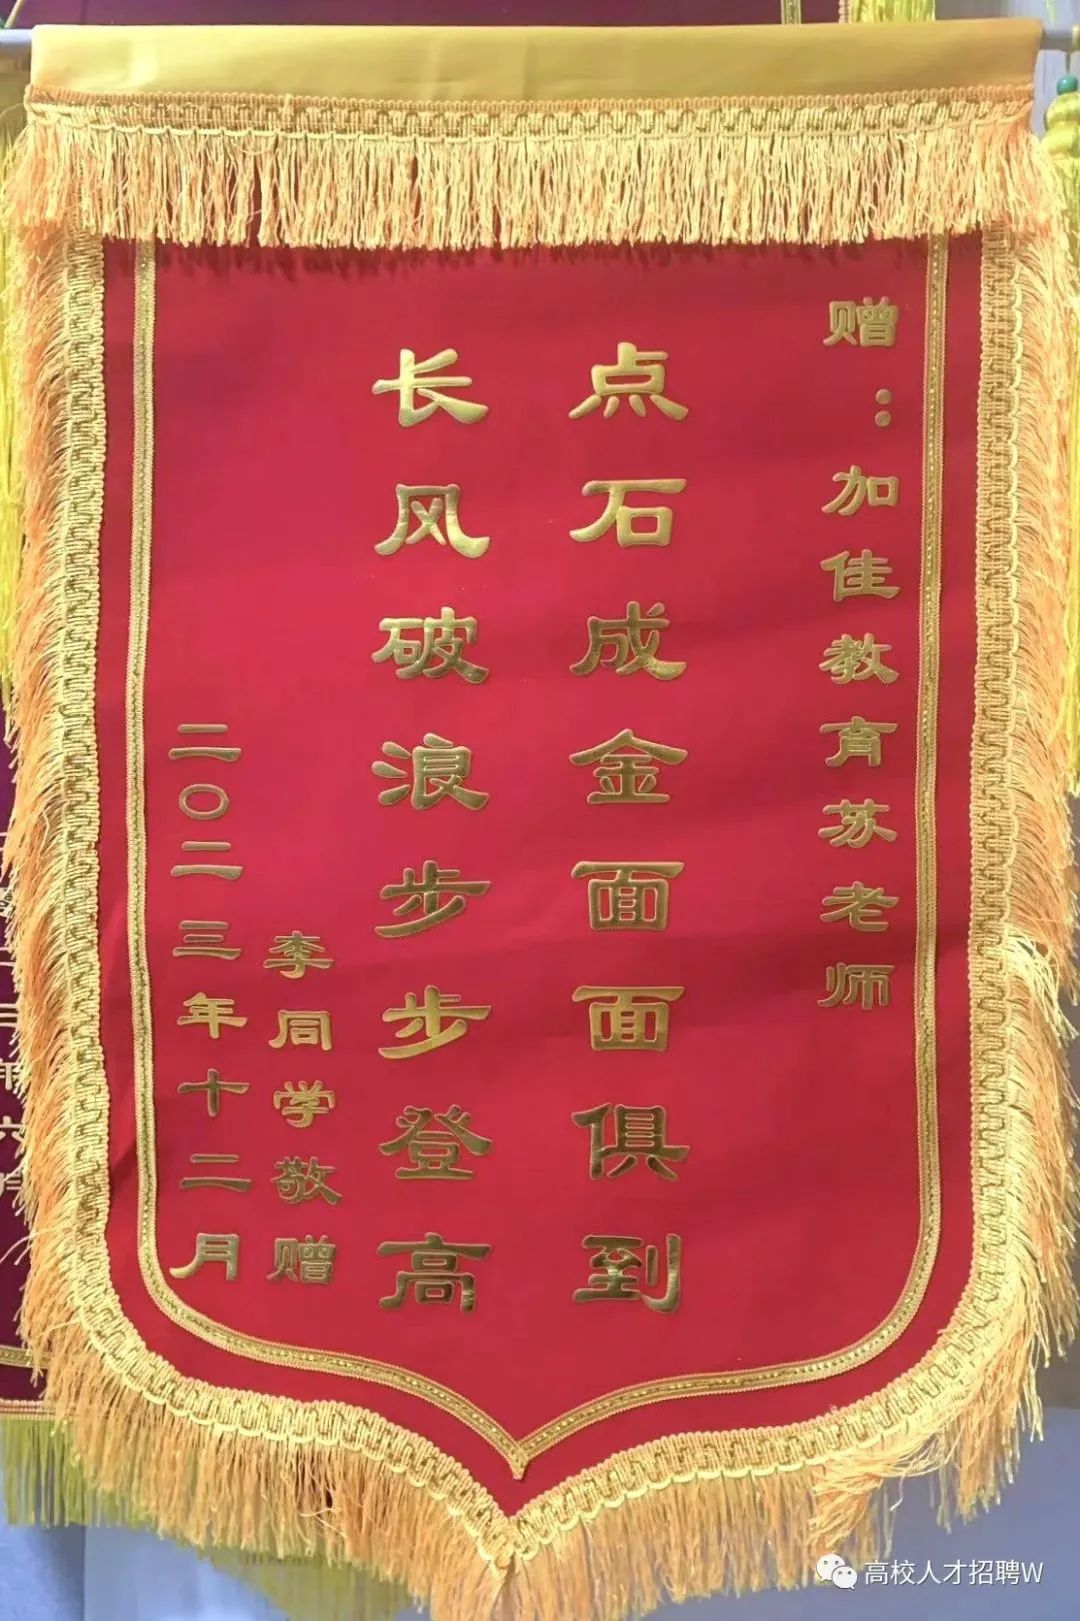 赠：加佳教育苏老师
点石成金面面俱到
长风破浪步步登高
李同学敬赠
二〇二三年十二月
高校人才招聘W